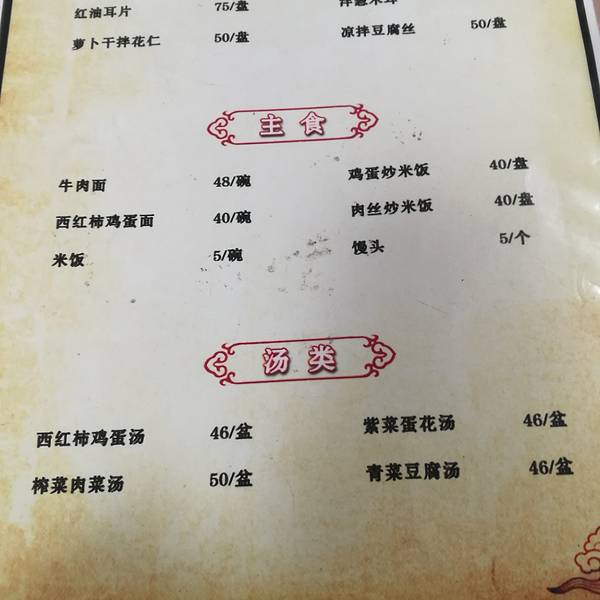 红油耳片 75/盘
萝卜干拌花仁 50/盘 凉拌豆腐丝 50/盘
主食
牛肉面 48/碗 鸡蛋炒米饭 40/盘
西红柿鸡蛋面 40/碗 肉丝炒米饭 40/盘
米饭 5/碗 馒头 5/个
汤类
西红柿鸡蛋汤 46/盆 紫菜蛋花汤 46/盆
榨菜肉菜汤 50/盆 青菜豆腐汤 46/盆